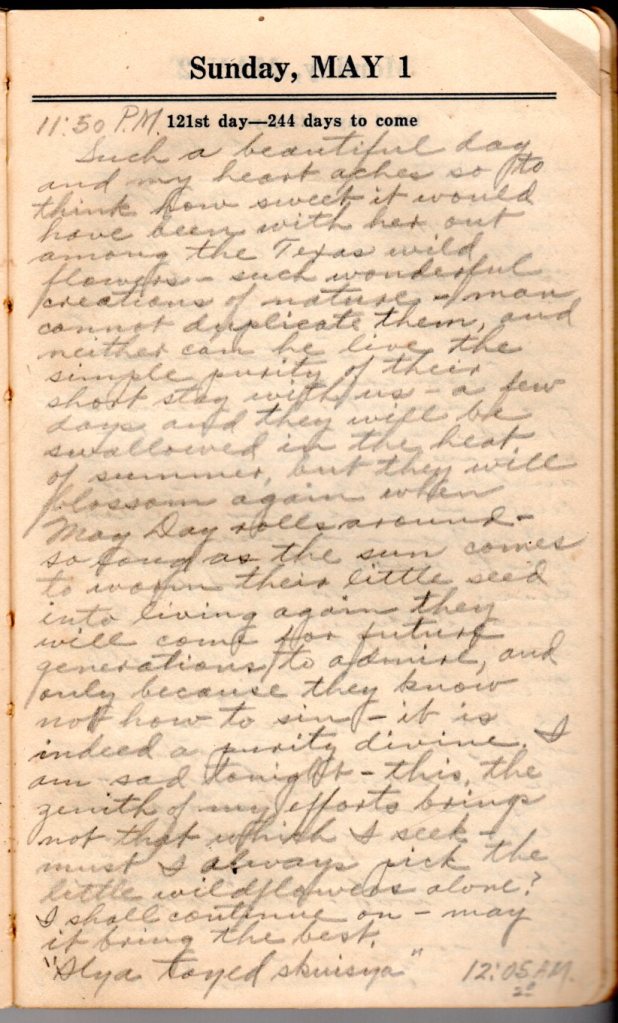 Sunday, MAY 1
11:50 P.M. 121st day—244 days to come
Such a beautiful day
and my heart aches so to
think how sweet it would
have been with her out
among the Texas wild
flowers - such wonderful
creations of nature - man
cannot duplicate them, and
neither can he live the
simple purity of their
short stay with us - a few
days and they will be
swallowed in the heat
of summer, but they will
blossom again when
May Day rolls around -
so long as the sun comes
to warm their little seed
into living again they
will come for future
generations to admire, and
only because they know
not how to sin - it is
indeed a purity divine. I
am sad tonight - this, the
zenith of my efforts brings
not that which I seek -
must I always pick the
little wildflowers alone?
I shall continue on - may
it bring the best.
"Ilya toyed skuisya" 12:05 AM.